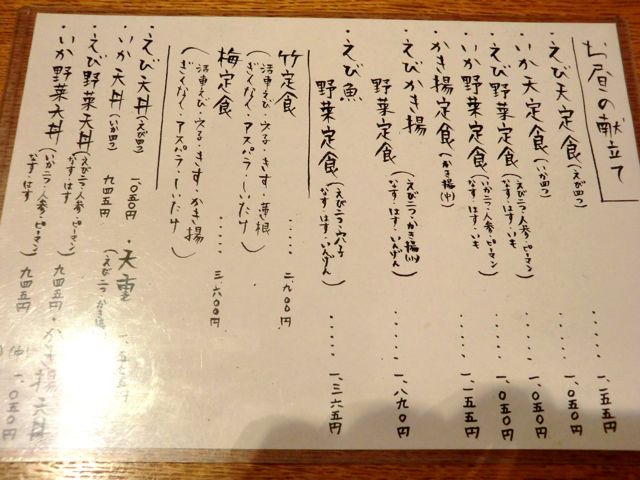 お昼の献立て
・えび天定食(えび四つ)・・・・・一、一五五円
・いか天定食(いか四つ)・・・・・一、〇五〇円
・えび野菜定食(えび二つ・人参・ピーマン なす・はす・いも)・・・・・一、〇五〇円
・いか野菜定食(いか二つ・人参・ピーマン なす・はす・いも)・・・・・一、〇五〇円
・かき揚定食(かき揚(中))・・・・・一、一五五円
・えびかき揚
野菜定食(えび二つ・かき揚(小) なす・はす・いんげん)・・・・・一、八九〇円
・えび魚
野菜定食(えび二つ・穴子 なす・はす・いんげん)・・・・・一、三六五円
竹定食・・・・・二、九〇〇円
(活車えび・穴子・きす・蓮根
ぎんなん・アスパラ・しいたけ)
梅定食・・・・・三、六〇〇円
(活車えび・穴子・きす・かき揚
ぎんなん・アスパラ・しいたけ)
・えび天丼(えび四つ)一、〇五〇円
・いか天丼(いか四つ)九四五円
・えび野菜天丼(えび二つ・人参・ピーマン なす・はす)九四五円
・いか野菜天丼(いか二つ・人参・ピーマン なす・はす)九四五円
・天重
(えび二つ・かき揚
・かき揚天丼
(中)一、〇五〇円